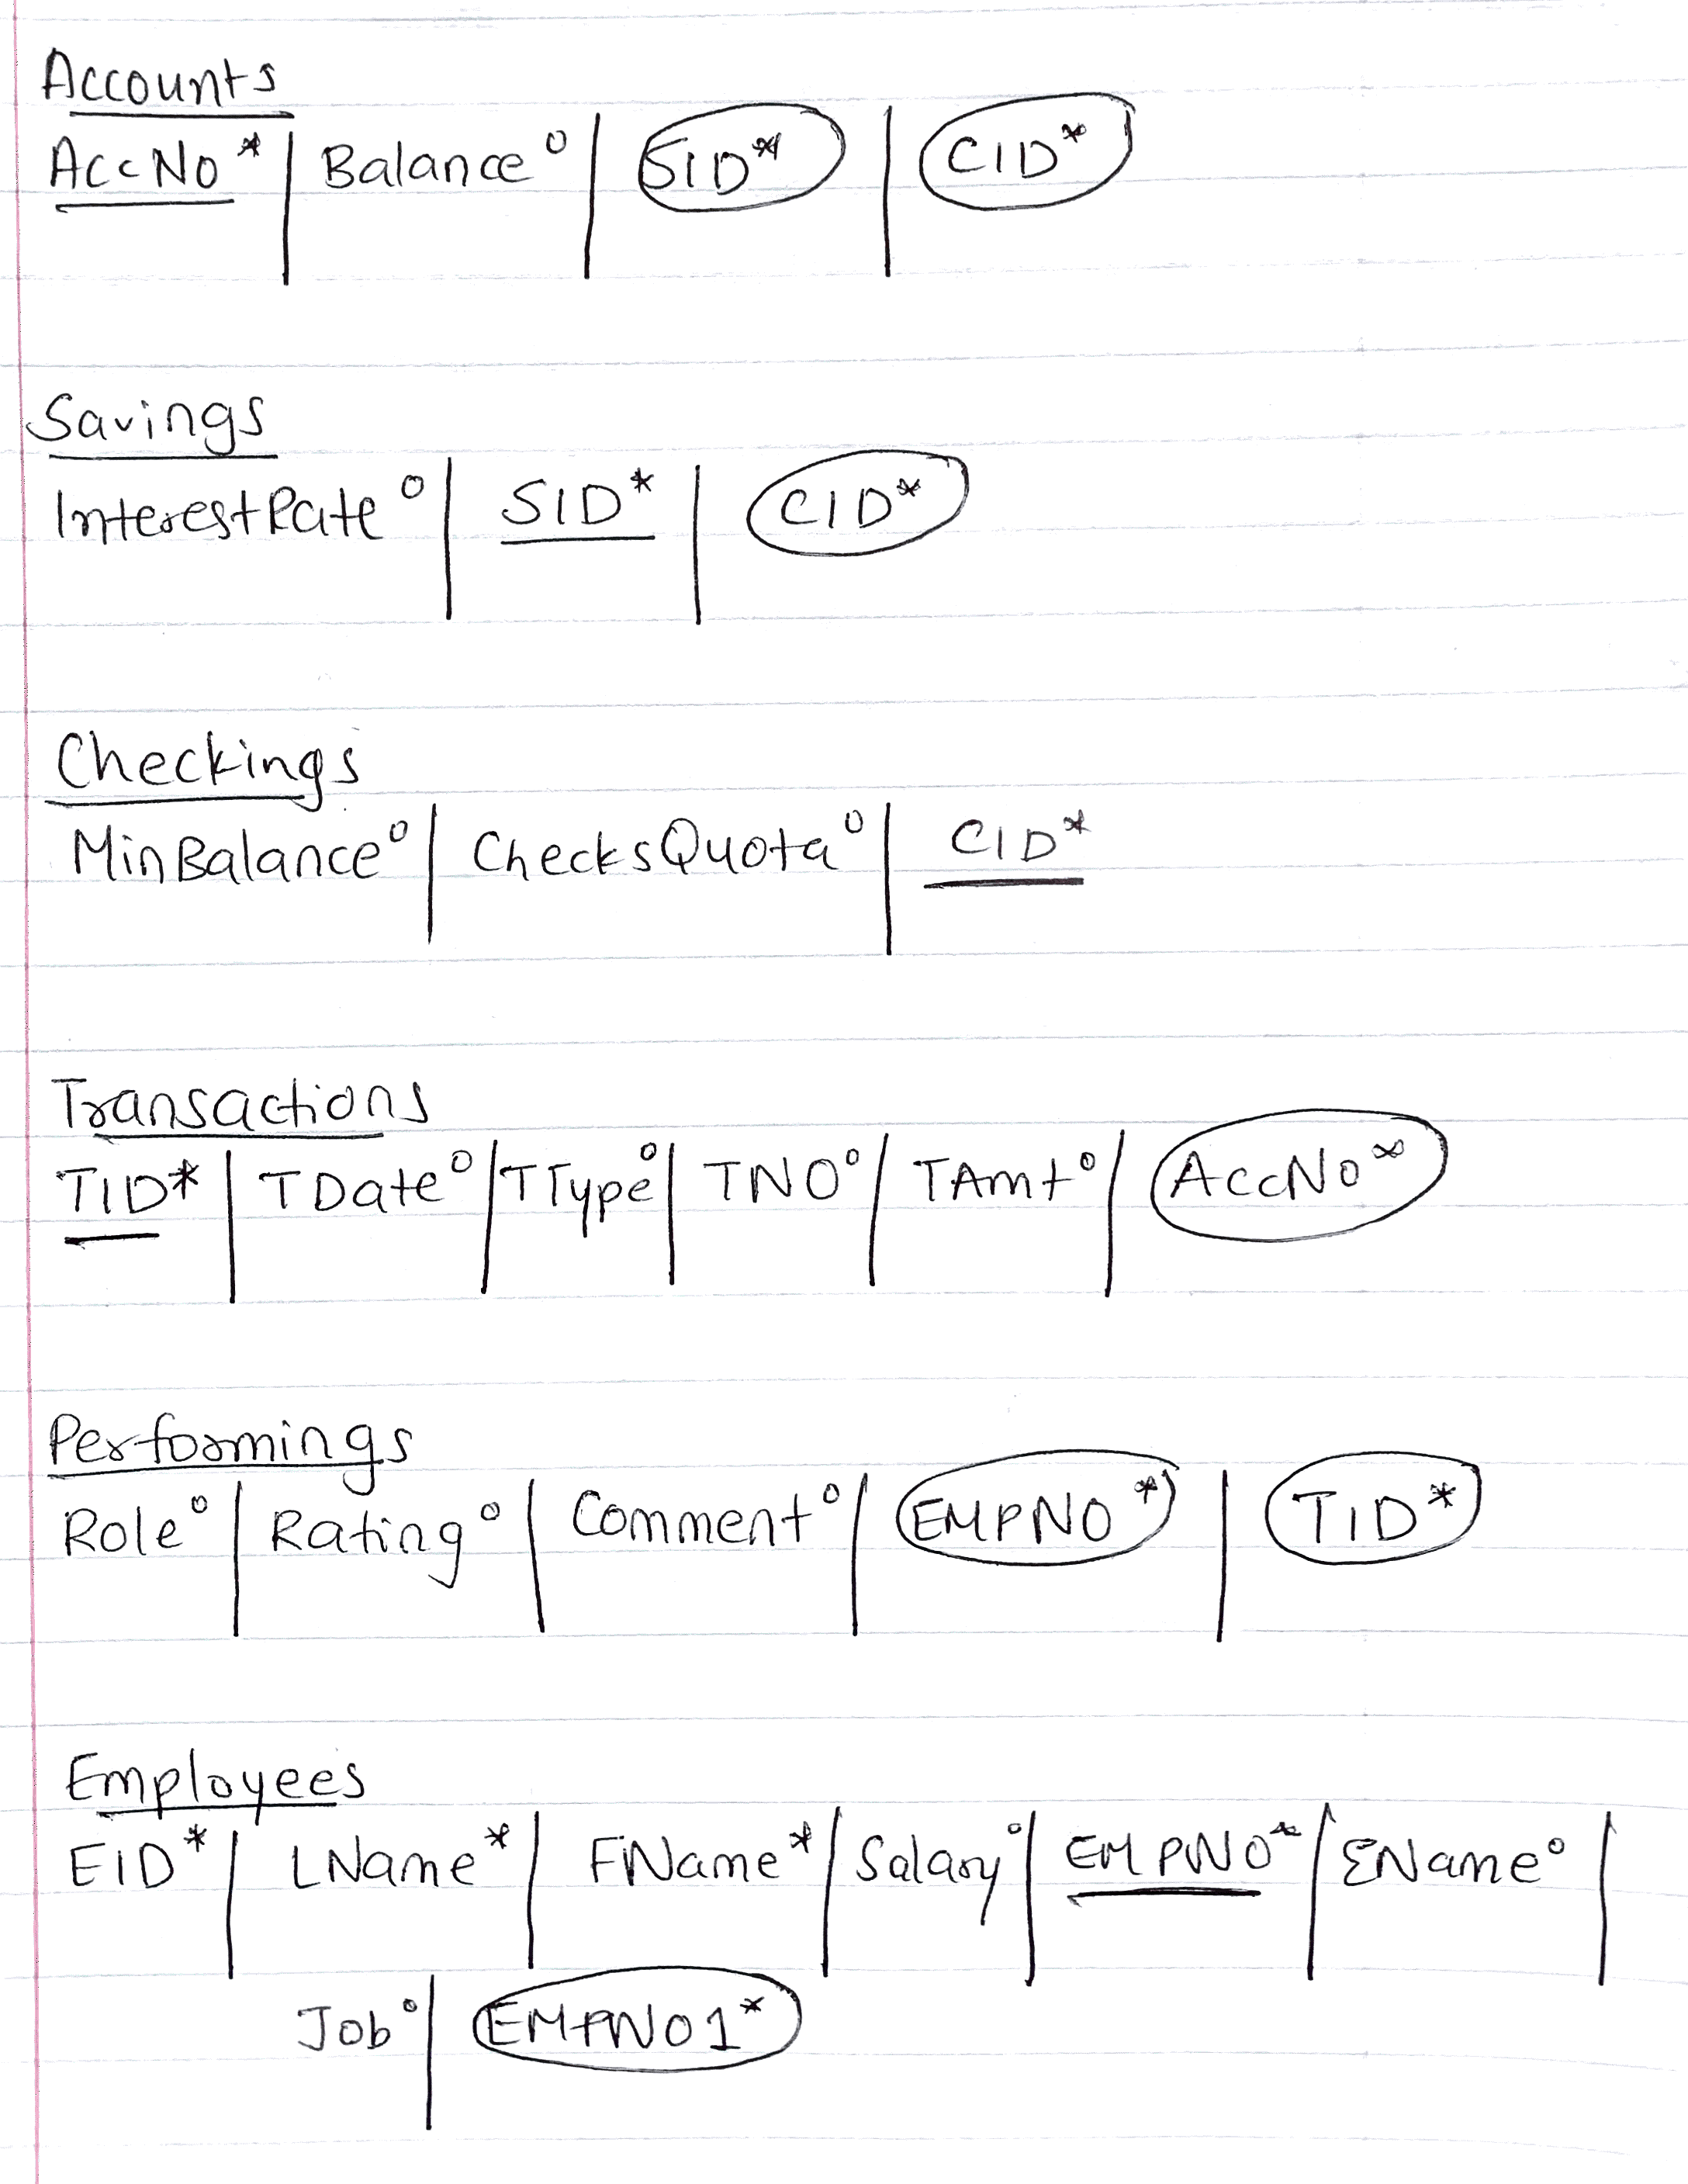 Accounts
AccNo * | Balance o | SID* | CID*
Savings
InterestRate o | SID* | CID*
Checkings
MinBalance o | ChecksQuota o | CID*
Transactions
TID* | TDate o | TType o | TNO o | TAmt o | AccNo *
Performings
Role o | Rating o | Comment o | EMPNO * | TID*
Employees
EID* | LName* | FName* | Salary o | EMPNO* | EName o |
Job o | EMPNO1*